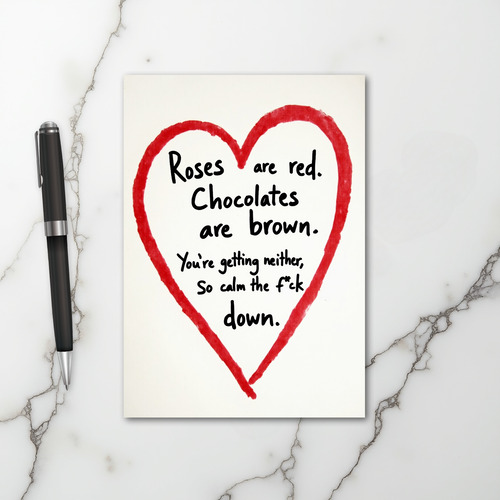 Roses are red.
Chocolates
are brown.
You're getting neither,
So calm the f*ck
down.